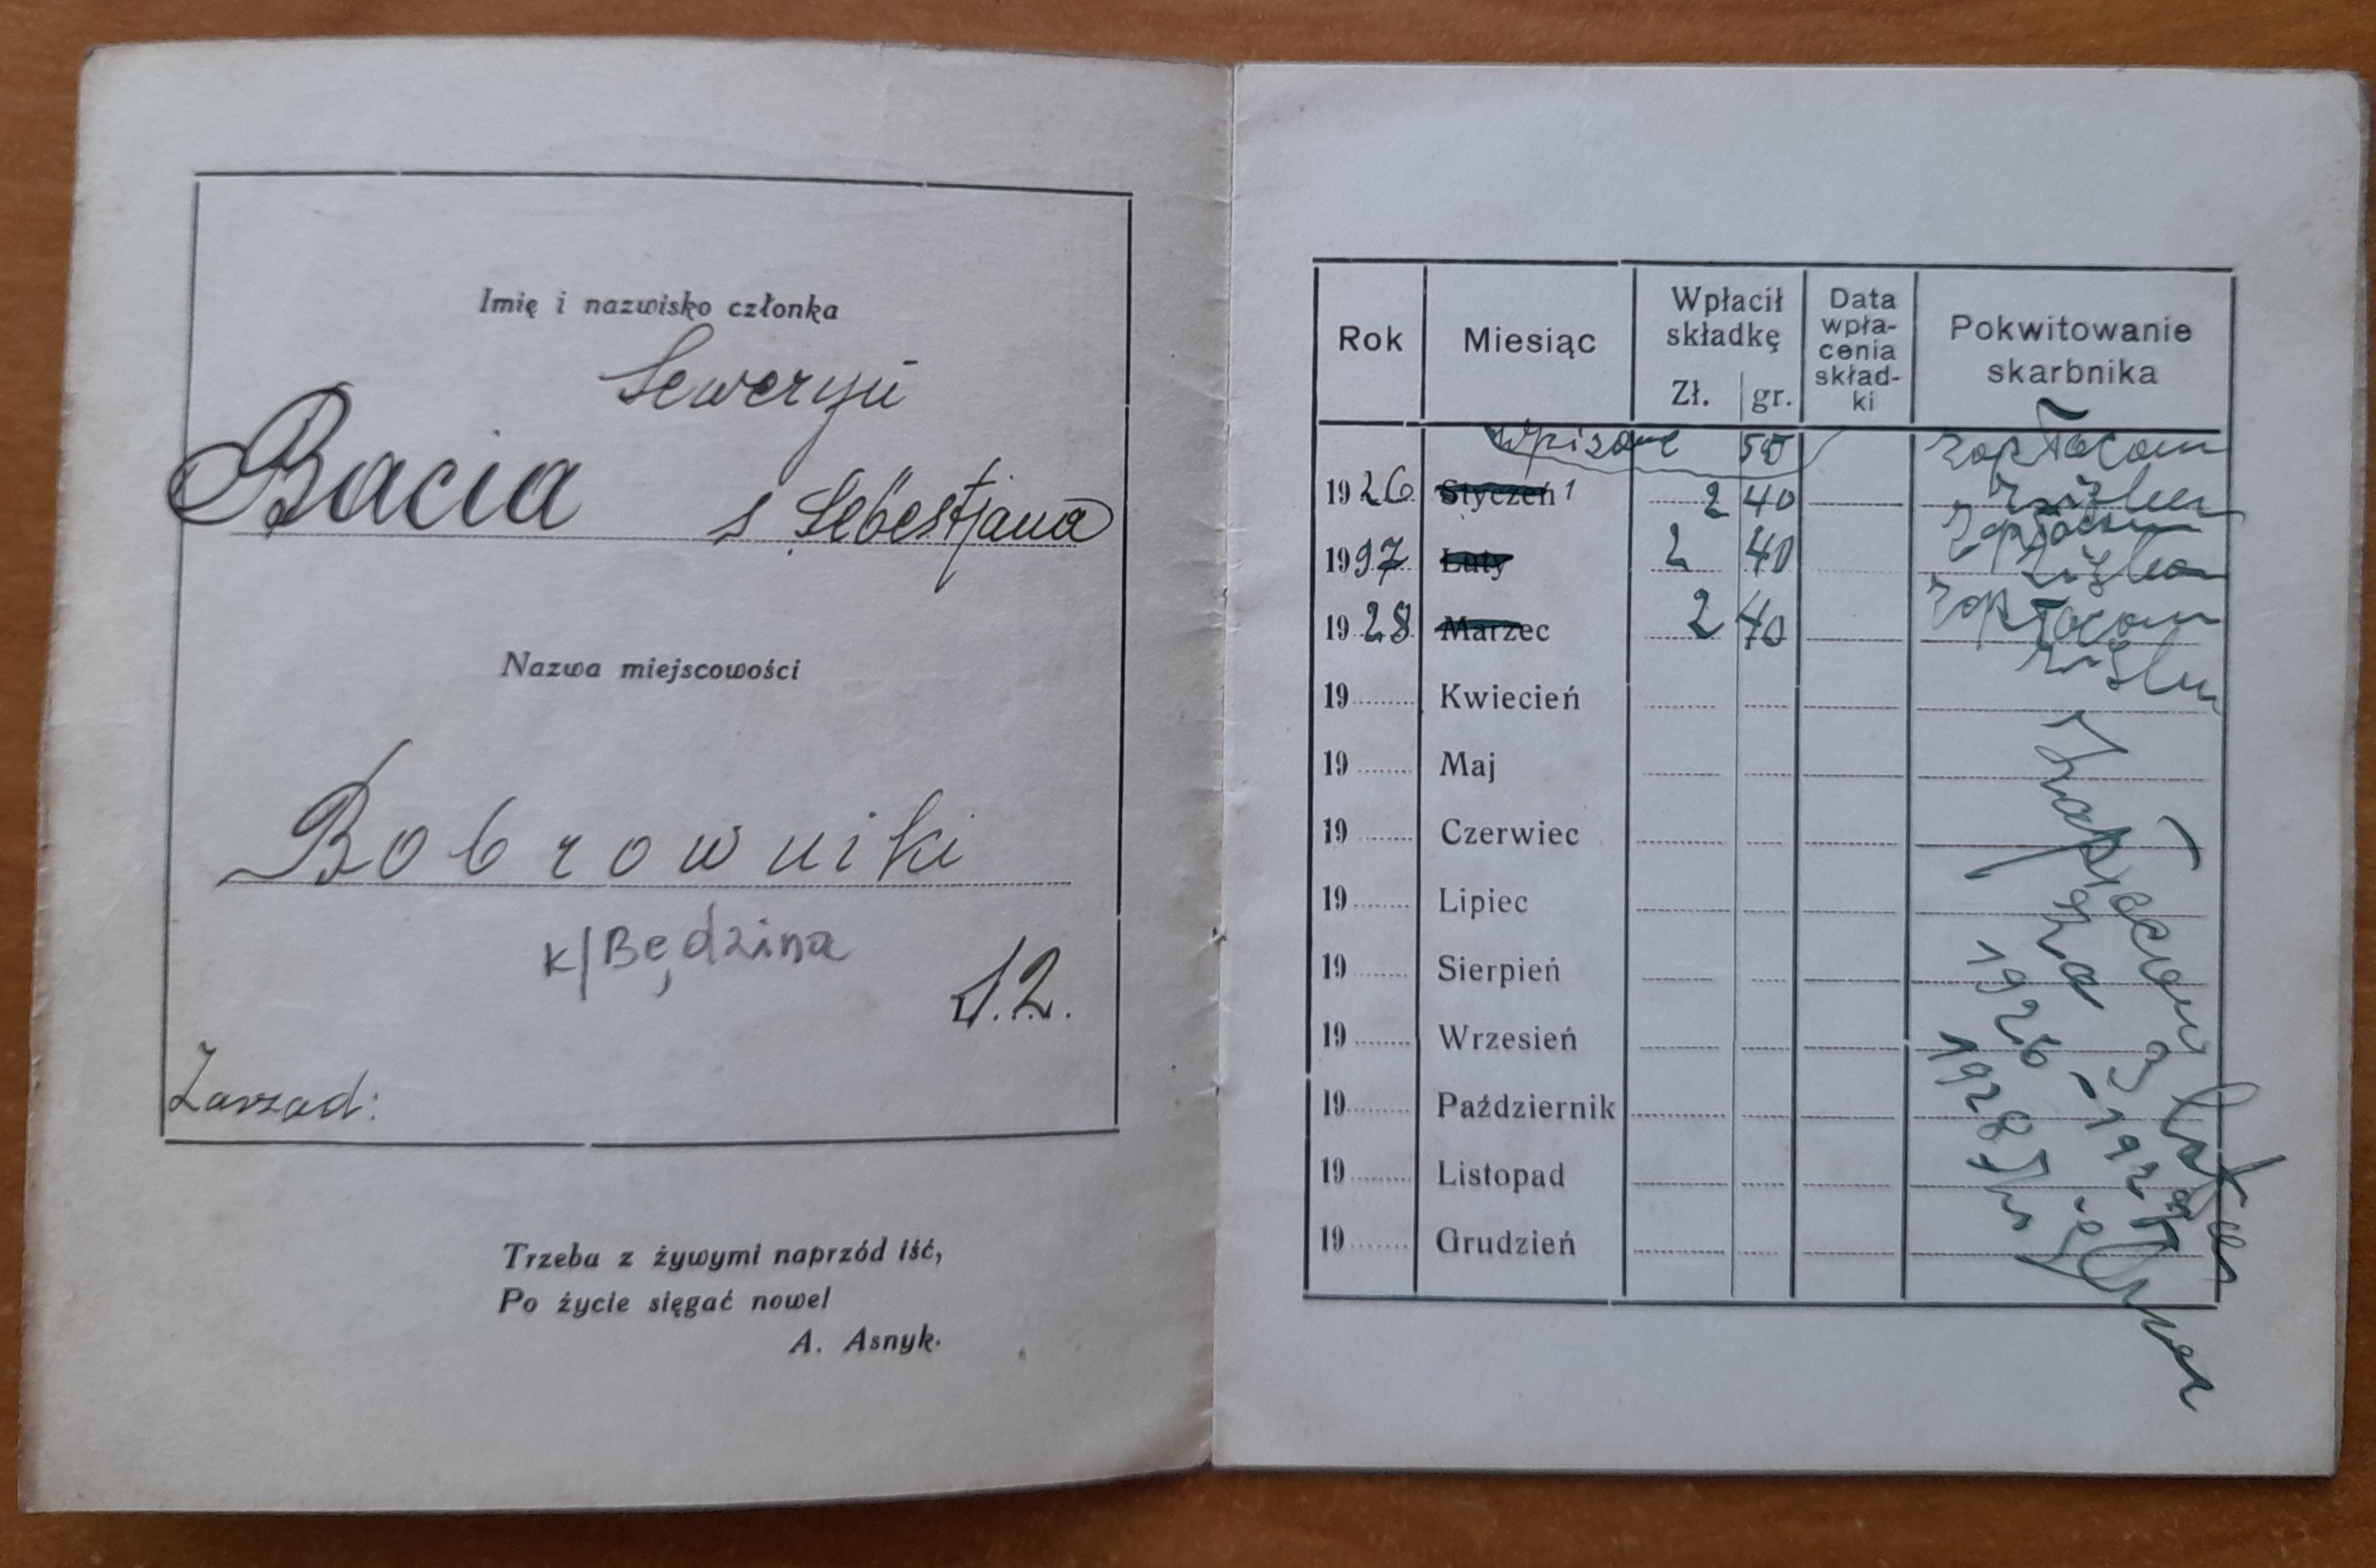 Imię i nazwisko członka
Seweryn
Bacia s Sebestjana
Nazwa miejscowości
Bobrowniki
k/Będzina
12.
Zarzad:
Trzeba z żywymi naprzód iść,
Po życie sięgać nowe!
A. Asnyk.
Rok Miesiąc Wpłacił składkę Zł. gr. Data wpła- cenia skład- ki Pokwitowanie skarbnika
Wpisowe 50 zapłacono
1926 Styczeń 1 2 40
1997 Luty 2 40
1928 Marzec 2 40 zapłacono
19 Kwiecień
19 Maj
19 Czerwiec
19 Lipiec
19 Sierpień
19 Wrzesień
19 Październik
19 Listopad
19 Grudzień
za
1926 - 1927
1928